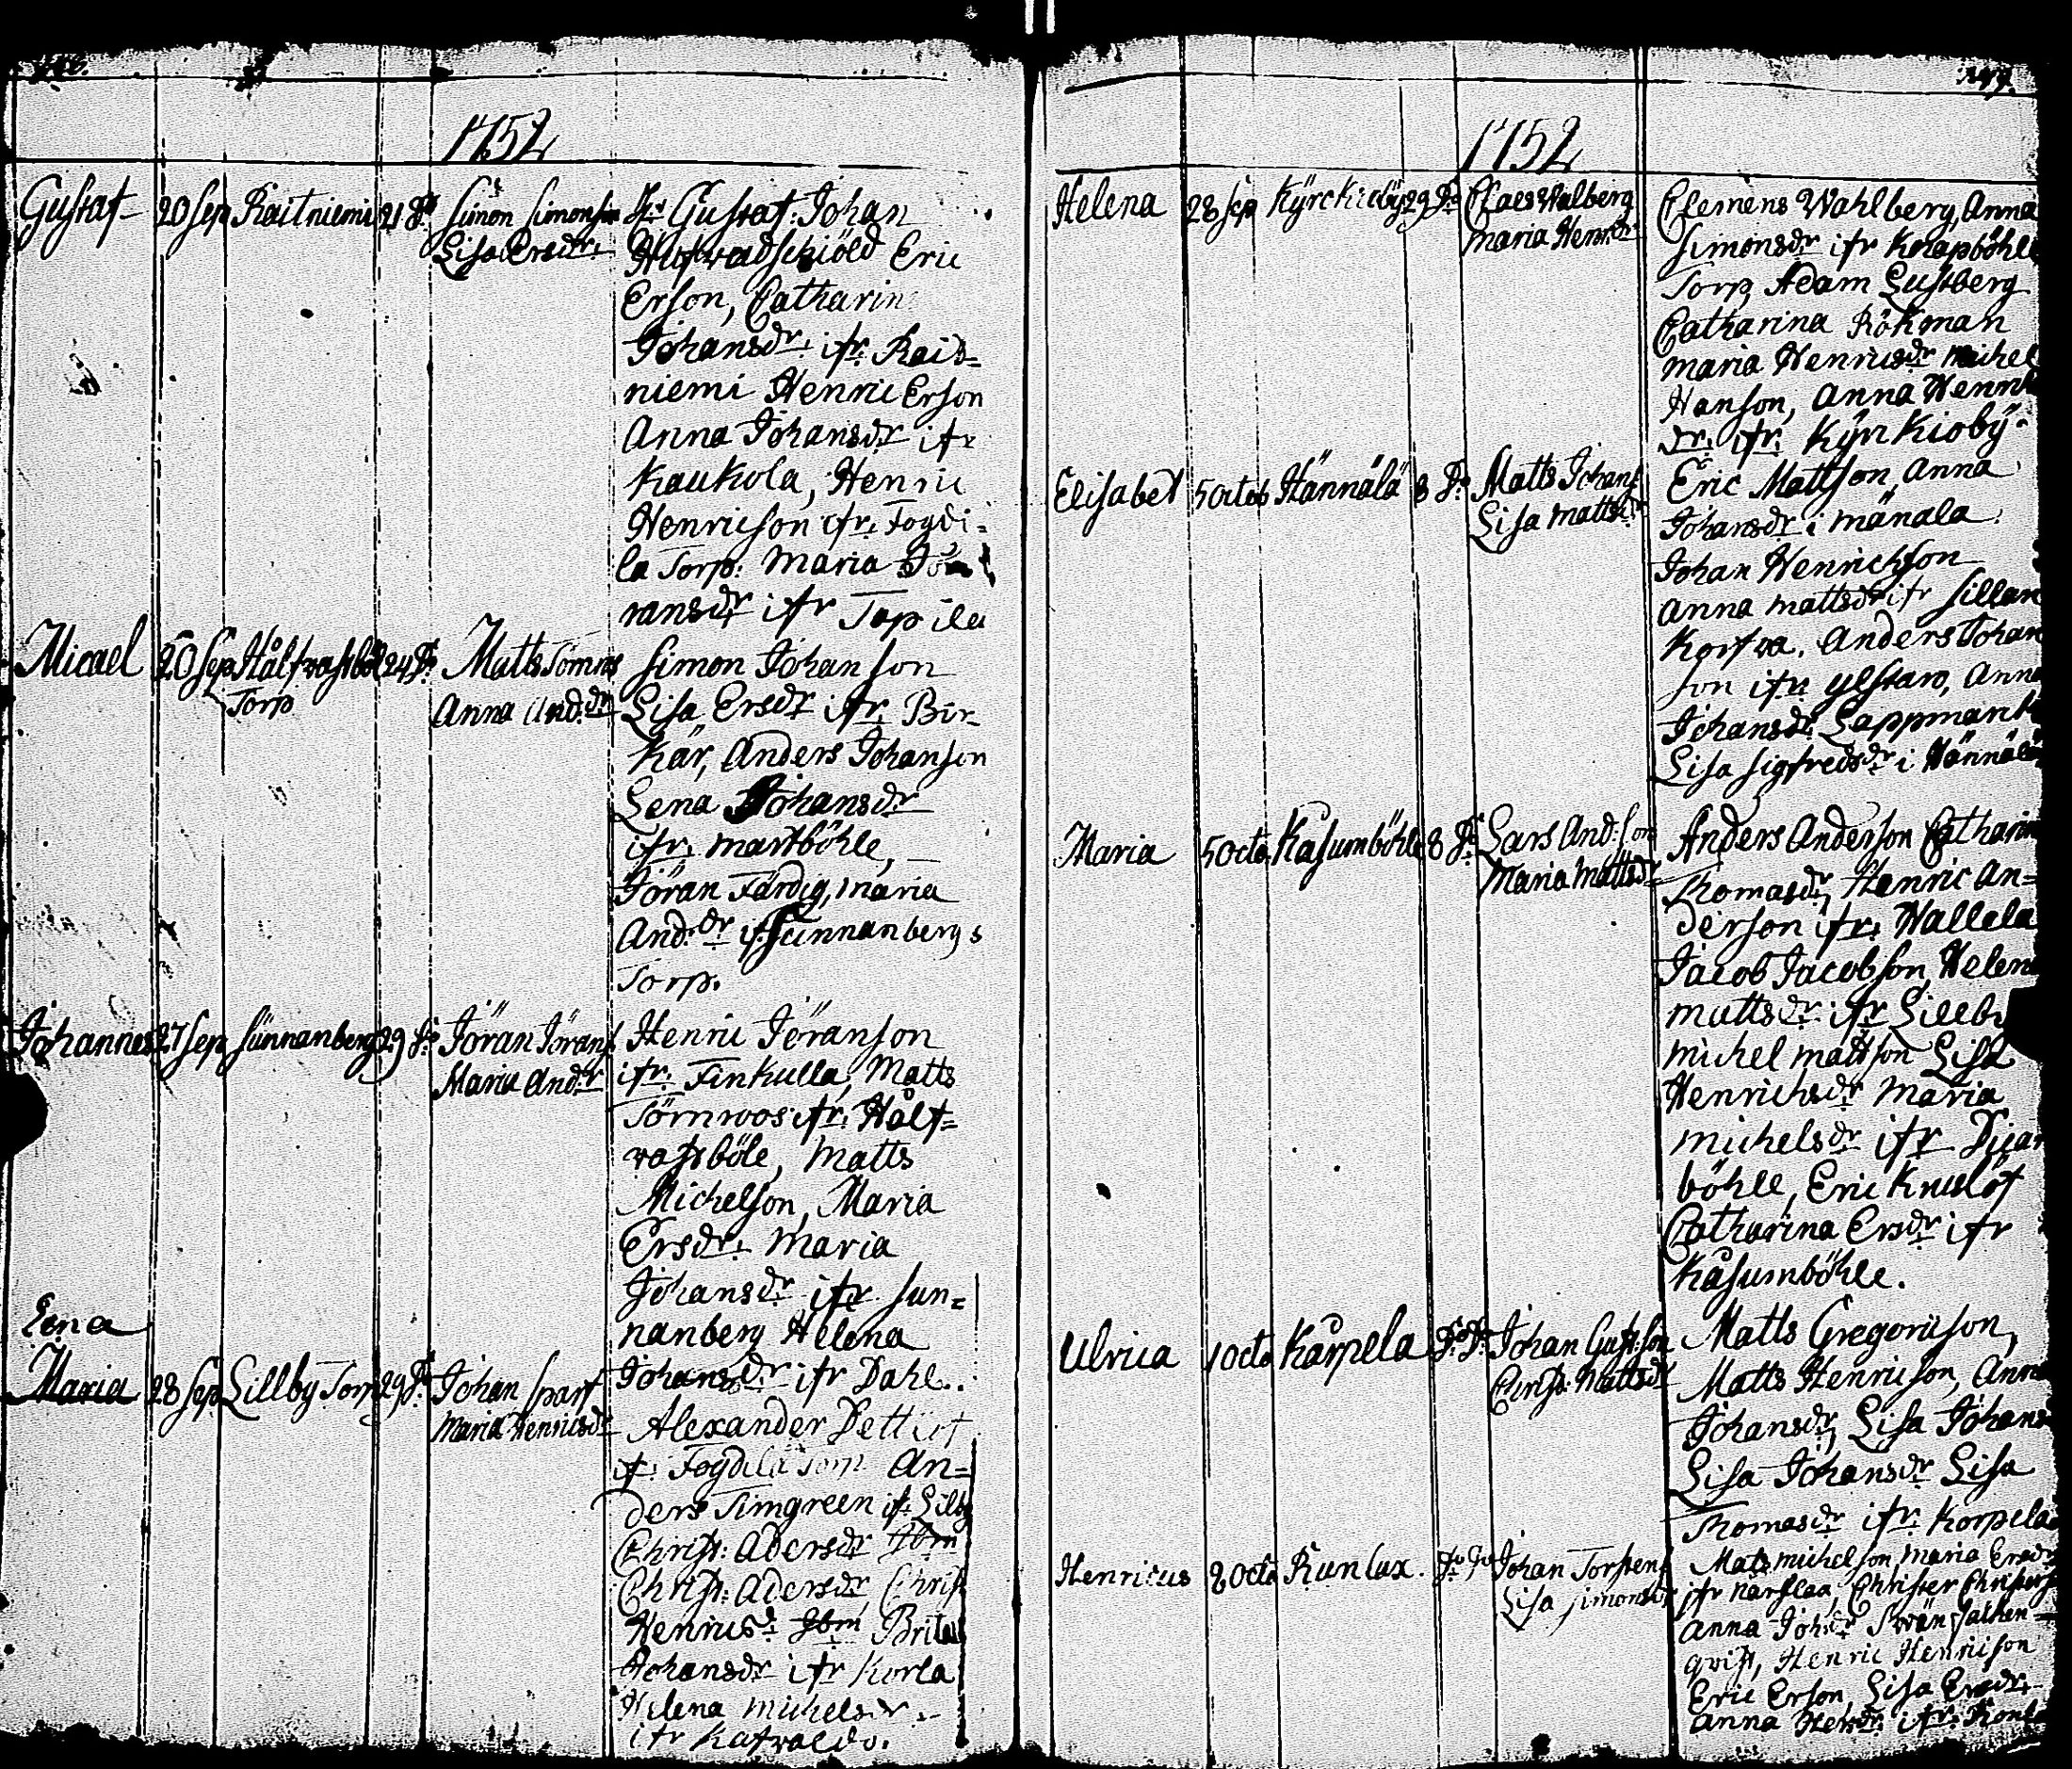 1752
Gustaf 20 Sep Raitniemi 21 do Simon Simonson
Lisa Ersdr.
Hr Gustaf Johan
Hufvadschiöld Eric
Erson, Catharin
Johansdr. ifr. Rait=
niemi Henric Erson
Anna Johansdr ifr
Kaukola, Henric
Henricson ifr. Fogdi=
la Torp. Maria
ransdr ifr Topila
Micael 20 Sep Hålfvasböl 24 do Matts Törnros
Torp Anna And.dr
Simon Johanson
Lisa Ersdr ifr. Bir-
kär, Anders Johanson
Lena Johansdr
ifr. martböhle,
Jöran Färdig, maria
And.dr if. Sunnanbergs
Torp.
Johannes 27 Sep Sunnanberg 29 do Jöran Jörans
Maria And.dr
Henric Jöranson
ifr. Finkulla, Matts
Törnroos ifr. Hålf=
vasböle, Matts
Michelson, Maria
Ersdr. Maria
Johansdr ifr. Sun=
nanberg Helena
Johansdr ifr Dahl.
Lena
Maria 28 Sep Lillby Torp 29 do Johan Sparf
Maria Henricsdr
Alexander
if. Fogdila Torp An=
ders Timgreen if. Lillby
Christ: Adersdr
Christ: Adersdr Christ
Henricsd Brita
Johansdr ifr Korla
Helena Michelsdr
ifr Kafvaldo.
1752
Helena 28 Sep Kyrckioby 29 do Claes Walberg
Maria Henr.dr
Clemens Wahlberg, Anna
Simonsdr ifr Knapböhle
Torp, Adam Lustberg
Catharina Rökman
Maria Henricsdr Michel
Hanson, Anna Henric
dr. ifr. Kyrkioby.
Elisabet 5 Octob Hännälä 8 do Matts Johans
Lisa Mattsdr
Eric Mattson, Anna
Johansdr i mänala.
Johan Henrichson
Anna Mattsdr ifr Sillan
Korfva. Anders Johan
son ifr ylstaro, Anna
Johansdr Lappmank
Lisa Sigfredsdr i Hännälä
Maria 5 Octo Kåsumböhle 8 do Lars And:son
Maria Mattsdr
Anders Anderson Catharin
Thomasdr, Henric An=
derson ifr. Hallela
Jacob Jacobson Helena
Mattsdr. ifr Lillby
Michel Mattson Lisa
Henrichsdr Maria
Michelsdr ifr
böhle, Eric Knuslöf
Catharina Ersdr ifr
Kåsumböhle.
Ulrica 1 Octo Kårpela do do Johan Gust:son
Christ: Mattsdr
Matts Gregorison,
Matts Henricson, Anna
Johansdr, Lisa Johans
Lisa Johansdr Lisa
Thomasdr ifr. Korpela
Henricus 2 Octo Runlax. do do Johan Torstens
Lisa Simonsdr
Mats Michelson Maria Ersdr
ifr Härslax, Christer Christers
Anna Joh:dr
qvist, Henric Henricson
Eric Erson, Lisa Ersdr.
Anna Hendr. ifr.